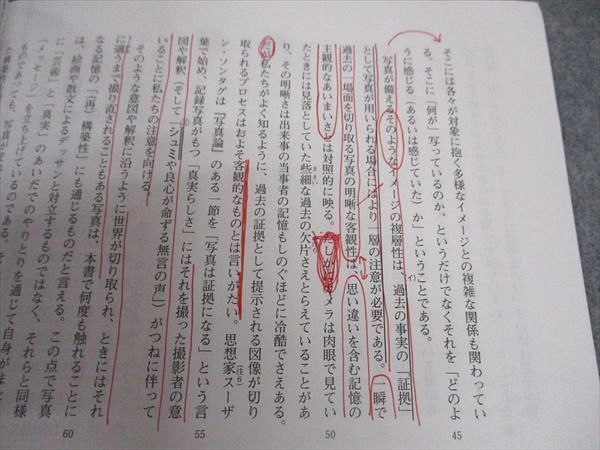 そこには各々が対象に抱く多様なイメージとの複雑な関係も関わってい
る。そこに「何が」写っているのか、というだけでなくそれを「どのよ
うに感じる（あるいは感じていた）か」ということである。
写真が備えるそのようなイメージの複層性は、過去の事実の「証拠」
イ)
として写真が用いられる場合にはより一層の注意が必要である。一瞬で
過去の一場面を切り取る写真の明晰な客観性は、思い違いを含む記憶の
主観的なあいまいさとは対照的に映る。たしかにカメラは肉眼で見てい
たときには見落としていた些細な過去の欠片さえとらえていることがあ
り、その明晰さは出来事の当事者の記憶もしのぐほどに冷酷でさえある。
だが私たちがよく知るように、過去の証拠として提示される図像が切り
取られるプロセスはおよそ客観的なものとは言いがたい。思想家スーザ
ン・ソンタグは『写真論』のある一節を「写真は証拠になる」という言
(注6)
葉で始め、記録写真がもつ「真実らしさ」にはそれを撮った撮影者の意
図や解釈（そして「シュミや良心が命ずる無言の声」）がつねに伴って
いることに私たちの注意を向ける。
そのような意図や解釈に沿うように世界が切り取られ、ときにはそれ
に適うまで撮り直されることもある写真は、本書で何度も触れることに
なる記憶の「（再）構築性」にも通じるものだと言える。この点で写真
は、絵画や散文によるデッサンと対立するものではなく、それらと同様
に「芸術」と「真実」のあいだでのやりとりを通じて自身がまと
45
50
55
60